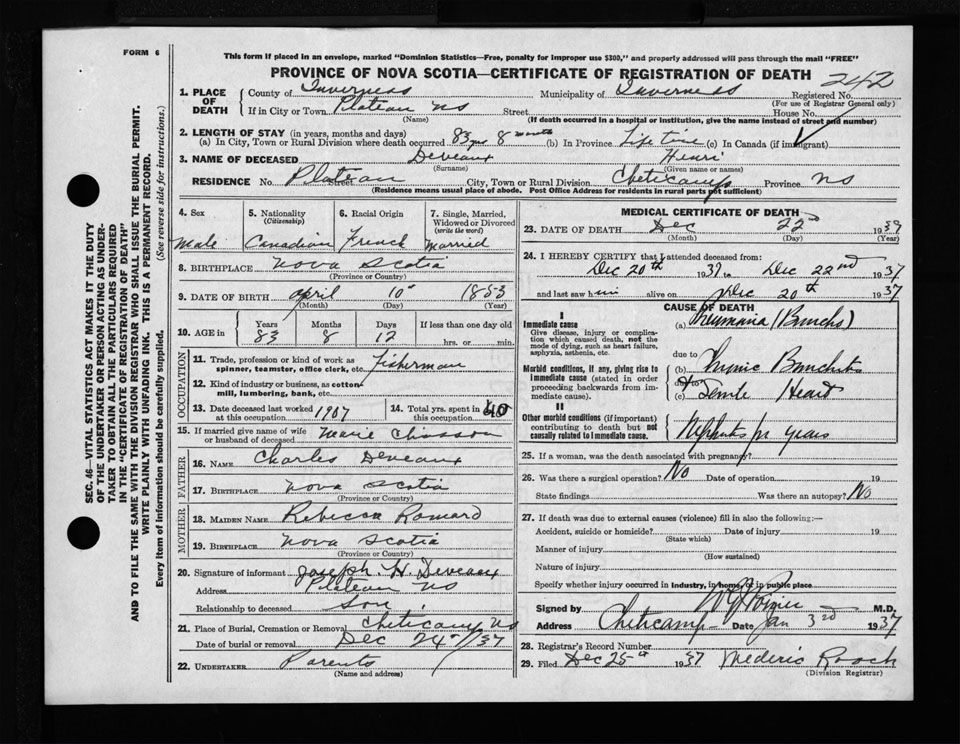 FORM 6
This form if placed in an envelope, marked "Dominion Statistics—Free, penalty for improper use $300," and properly addressed will pass through the mail "FREE"
PROVINCE OF NOVA SCOTIA—CERTIFICATE OF REGISTRATION OF DEATH 242
1. PLACE OF DEATH County of Inverness Municipality of Inverness Registered No.
(For use of Registrar General only)
If in City or Town Plateau NS Street House No.
(Name) (If death occurred in a hospital or institution, give the name instead of street and number)
2. LENGTH OF STAY (in years, months and days)
(a) In City, Town or Rural Division where death occurred 83 yrs 8 months (b) In Province Life time (c) In Canada (if immigrant)
3. NAME OF DECEASED Deveaux Henri
(Surname) (Given name or names)
RESIDENCE No. Plateau Street City, Town or Rural Division Cheticamp Province NS
(Residence means usual place of abode. Post Office Address for residents in rural parts not sufficient)
SEC. 46—VITAL STATISTICS ACT MAKES IT THE DUTY
OF THE UNDERTAKER OR PERSON ACTING AS UNDER-
TAKER TO OBTAIN ALL THE PARTICULARS REQUIRED
IN THE "CERTIFICATE OF REGISTRATION OF DEATH"
AND TO FILE THE SAME WITH THE DIVISION REGISTRAR WHO SHALL ISSUE THE BURIAL PERMIT.
WRITE PLAINLY WITH UNFADING INK. THIS IS A PERMANENT RECORD.
Every item of information should be carefully supplied. (See reverse side for instructions.)
4. Sex 5. Nationality (Citizenship) 6. Racial Origin 7. Single, Married, Widowed or Divorced (write the word)
Male Canadian French Married
8. BIRTHPLACE Nova Scotia
(Province or Country)
9. DATE OF BIRTH April 10 1853
(Month) (Day) (Year)
10. AGE in Years Months Days If less than one day old
83 8 12 hrs. or min.
OCCUPATION
11. Trade, profession or kind of work as spinner, teamster, office clerk, etc. Fisherman
12. Kind of industry or business, as cotton mill, lumbering, bank, etc.
13. Date deceased last worked at this occupation 1907 14. Total yrs. spent in this occupation 40
15. If married give name of wife or husband of deceased Marie Chiasson
FATHER
16. NAME Charles Deveaux
17. BIRTHPLACE Nova Scotia
(Province or Country)
MOTHER
18. MAIDEN NAME Rebecca Romard
19. BIRTHPLACE Nova Scotia
(Province or Country)
20. Signature of informant Joseph H. Deveaux
Address Plateau NS
Relationship to deceased Son
21. Place of Burial, Cremation or Removal Cheticamp NS
Date of burial or removal Dec 24/37
22. UNDERTAKER Parents
(Name and address)
MEDICAL CERTIFICATE OF DEATH
23. DATE OF DEATH Dec 22nd 1937
(Month) (Day) (Year)
24. I HEREBY CERTIFY that I attended deceased from:
Dec 20th 1937 to Dec 22nd 1937
and last saw him alive on Dec 20th 1937
CAUSE OF DEATH
I
Immediate cause (a) Pneumonia (Broncho)
Give disease, injury or complication which caused death, not the mode of dying, such as heart failure, asphyxia, asthenia, etc.
due to
Morbid conditions, if any, giving rise to immediate cause (stated in order proceeding backwards from immediate cause). (b) Chronic Bronchitis
(c) Senile Heart
II
Other morbid conditions (if important) contributing to death but not causally related to immediate cause. Nephritis for years
25. If a woman, was the death associated with pregnancy?
26. Was there a surgical operation? No Date of operation 19
State findings Was there an autopsy? No
27. If death was due to external causes (violence) fill in also the following:—
Accident, suicide or homicide? Date of injury 19
(State which)
Manner of injury
(How sustained)
Nature of injury
Specify whether injury occurred in industry, in home, or in public place
Signed by Poirier M.D.
Address Cheticamp Date Jan 3rd 1937
28. Registrar's Record Number
29. Filed Dec 25th 1937 Mederic Roach
(Division Registrar)